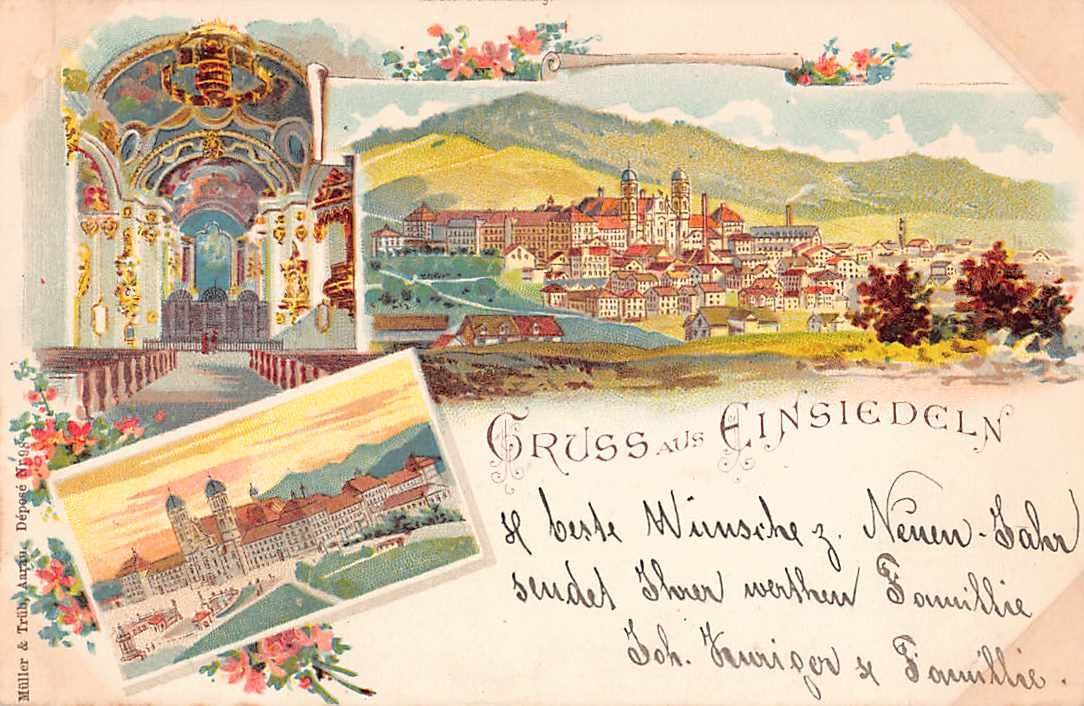 GRUSS AUS EINSIEDELN
& beste Wünsche z. Neuen-Jahr
sendet Ihrer werthen Familie
Joh. Kuriger & Familie.
Müller & Trüb, Aarau. Déposé Nr. 98